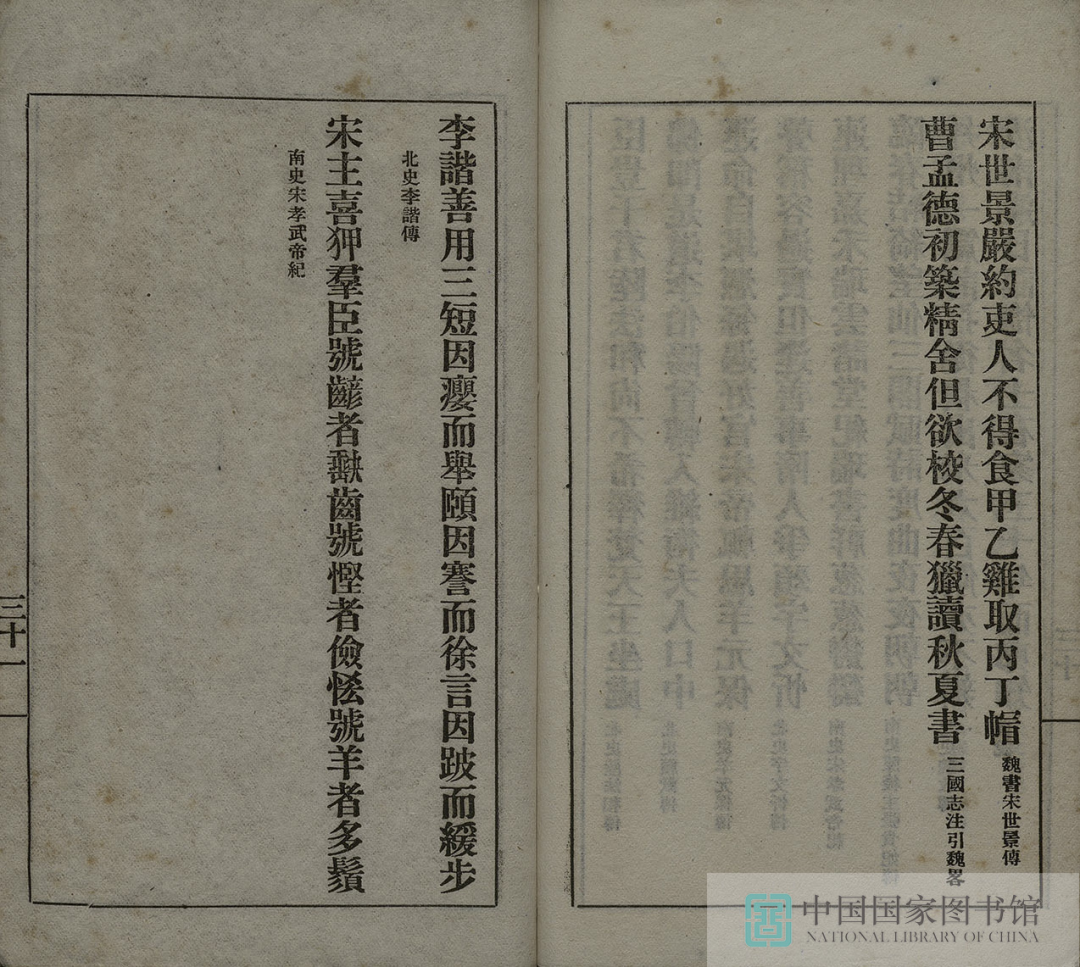 宋世景嚴約吏人不得食甲乙雞取丙丁帽 魏書宋世景傳
曹孟德初築精舍但欲校冬春獵讀秋夏書 三國志注引魏畧
三十一
李諧善用三短因癭而舉頤因謇而徐言因跛而緩步
北史李諧傳
宋主喜狎羣臣號齴者齾齒號慳者儉恡號羊者多鬚
南史宋孝武帝紀
中国国家图书馆
NATIONAL LIBRARY OF CHINA